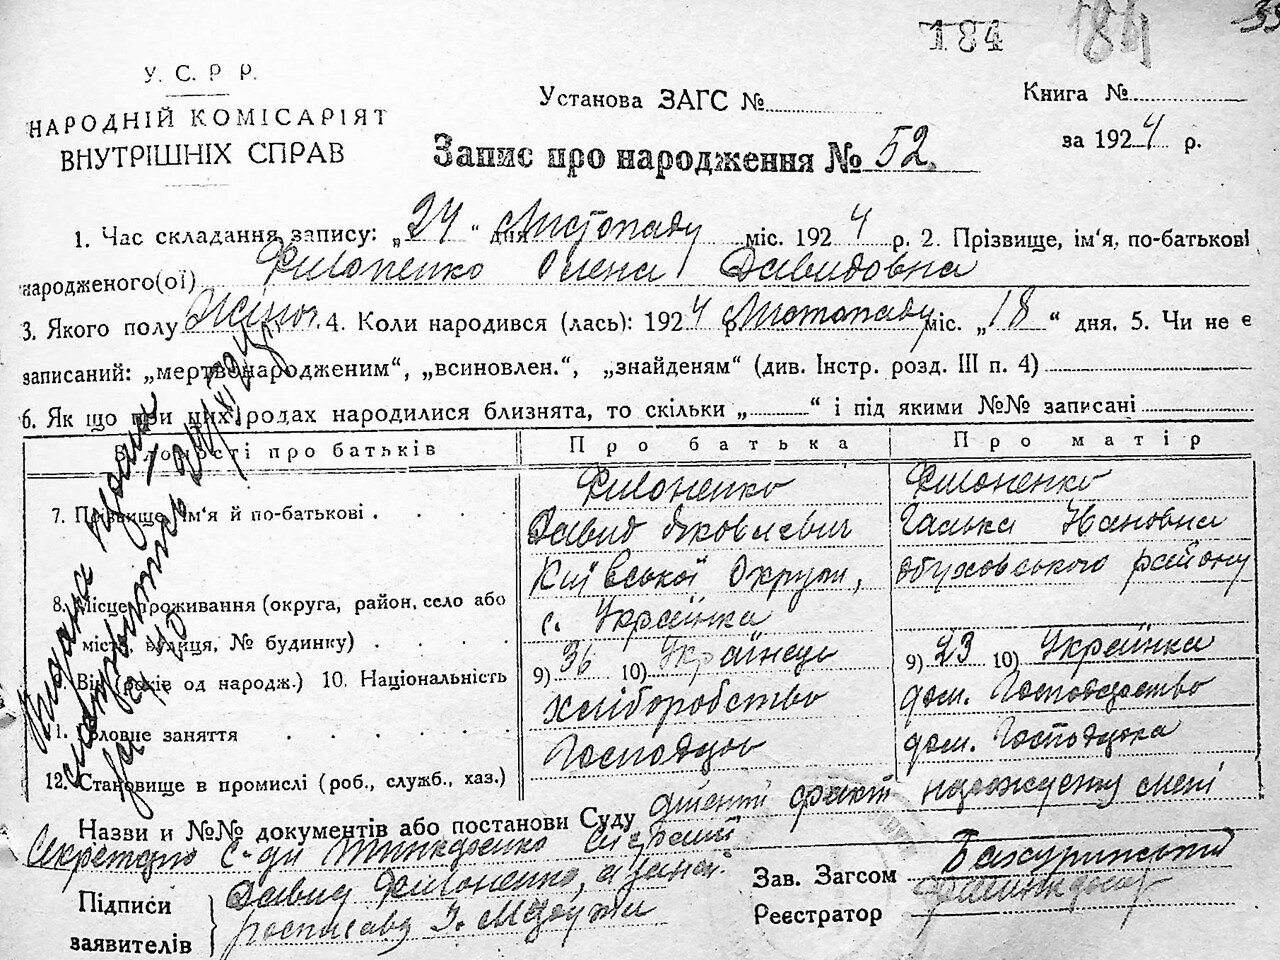 184 184
У. С. Р Р.
НАРОДНІЙ КОМІСАРІЯТ
ВНУТРІШНІХ СПРАВ
Установа ЗАГС №
Книга №
за 1924 р.
Запис про народження № 52.
1. Час складання запису: „24" дня Листопаду міс. 1924 р. 2. Прізвище, ім'я, по-батькові
народженого(ої) Филоненко Олена Давидовна
3. Якого полу Жіноч. 4. Коли народився (лась): 1924 р. Листопаду міс. „18" дня. 5. Чи не є
записаний: „мертвонародженим", „всиновлен.", „знайденям" (див. Інстр. розд. III п. 4)
6. Як що при цих родах народилися близнята, то скільки „ " і під якими №№ записані
Відомості про батьків Про батька Про матір
Филоненко Филоненко
7. Прізвище, ім'я й по-батькові . . . .
Давид Яковлевич Галька Ивановна
Київської Округи, Обуховського району
8. Місце проживання (округа, район, село або
с. Українка
місто, вулиця, № будинку) . . . .
9) 36 10) Українець 9) 23 10) Українка
Вік (років од народж.) 10. Національність
хліборобство дом. Господарство
11. Головне заняття . . . . .
Господар дом. Господарка
12. Становище в промислі (роб., служб., хаз.)
Назви и №№ документів або постанови Суду факт
Секретарю
Підписи
заявителів
Давид Филоненко, а за
Зав. Загсом
Реєстратор
Видана